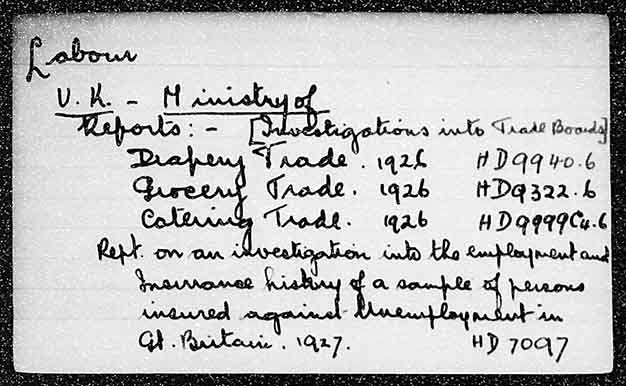 Labour
U.K. - Ministry of
Reports: - [Investigations into Trade Boards]
Drapery Trade. 1926 HD9940.6
Grocery Trade. 1926 HD9322.6
Catering Trade. 1926 HD9999C4.6
Rept. on an investigation into the employment and
Insurance history of a sample of persons
insured against Unemployment in
Gt. Britain. 1927. HD7097